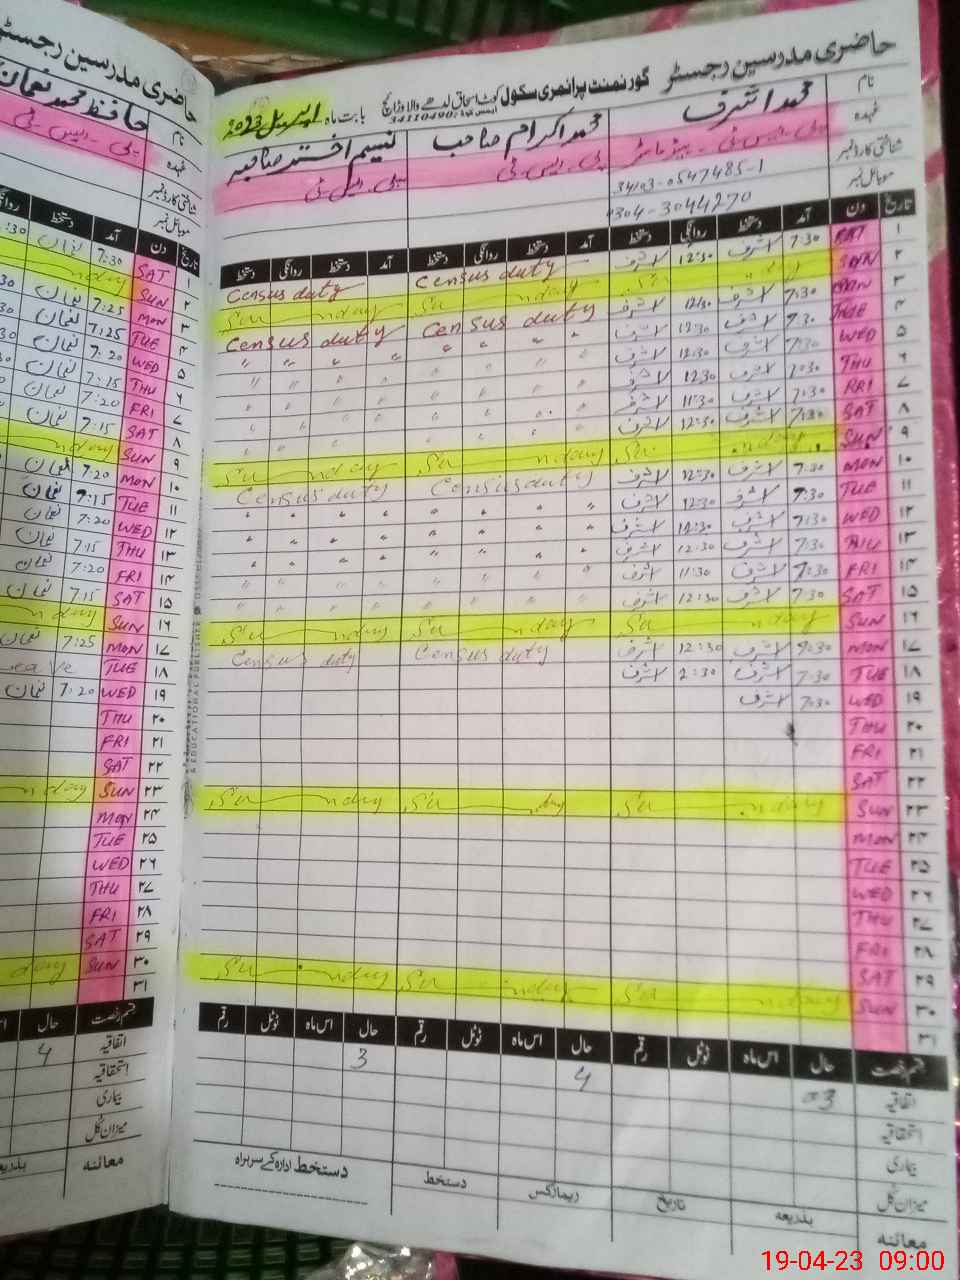 حاضری مدرسین رجسٹر
گورنمنٹ پرائمری سکول کوٹ اسحاق لدھے والا وڑائچ
34110490
بابت ماہ اپریل 2023
نام محمد اشرف محمد اکرام صاحب نسیم اختر صاحبہ
عہدہ پی۔ایس۔ٹی۔ ہیڈ ماسٹر پی۔ایس۔ٹی پی۔ایس۔ٹی
شناختی کارڈ نمبر 34103-0547485-1
موبائل نمبر 0304-3044270
تاریخ دن آمد دستخط روانگی دستخط آمد دستخط روانگی دستخط آمد دستخط روانگی دستخط
۱ SAT 7:30 اشرف 12:30 اشرف Census duty Census duty
۲ SUN Sunday Sunday
۳ MON 7:30 اشرف 12:30 اشرف Census duty Census duty
۴ TUE 7:30 اشرف 12:30 اشرف " " " " " " " "
۵ WED 7:30 اشرف 12:30 اشرف " " " " " " " "
۶ THU 7:30 اشرف 12:30 اشرف " " " " " " " "
۷ FRI 7:30 اشرف 11:30 اشرف " " " " " " " "
۸ SAT 7:30 اشرف 12:30 اشرف " " " " " " " "
۹ SUN Sunday Sunday Sunday
۱۰ MON 7:30 اشرف 12:30 اشرف Census duty Census duty
۱۱ TUE 7:30 اشرف 12:30 اشرف " " " " " " " "
۱۲ WED 7:30 اشرف 12:30 اشرف " " " " " " " "
۱۳ THU 7:30 اشرف 12:30 اشرف " " " " " " " "
۱۴ FRI 7:30 اشرف 11:30 اشرف " " " " " " " "
۱۵ SAT 7:30 اشرف 12:30 اشرف " " " " " " " "
۱۶ SUN Sunday Sunday Sunday
۱۷ MON 7:30 اشرف 12:30 اشرف Census duty Census duty
۱۸ TUE 7:30 اشرف 2:30 اشرف
۱۹ WED 7:30 اشرف
۲۰ THU
۲۱ FRI
۲۲ SAT
۲۳ SUN Sunday Sunday Sunday
۲۴ MON
۲۵ TUE
۲۶ WED
۲۷ THU
۲۸ FRI
۲۹ SAT
۳۰ SUN Sunday Sunday Sunday
۳۱
قسم رخصت حال اس ماہ ٹوٹل رقم حال اس ماہ ٹوٹل رقم حال اس ماہ ٹوٹل رقم
اتفاقیہ 3 4 3
استحقاقیہ
بیماری
میزان کُل
معائنہ بذریعہ تاریخ ریمارکس دستخط دستخط ادارہ کے سربراہ
حاضری مدرسین رجسٹر
نام حافظ محمد نعمان
عہدہ پی۔ایس۔ٹی
شناختی کارڈ نمبر
موبائل نمبر
تاریخ دن آمد دستخط
۱ SAT 7:30 نعمان
۲ SUN nday
۳ MON 7:25 نعمان
۴ TUE 7:25 نعمان
۵ WED 7:20 نعمان
۶ THU 7:15 نعمان
۷ FRI 7:20 نعمان
۸ SAT 7:15 نعمان
۹ SUN nday
۱۰ MON 7:20 نعمان
۱۱ TUE 7:15 نعمان
۱۲ WED 7:20 نعمان
۱۳ THU 7:15 نعمان
۱۴ FRI 7:20 نعمان
۱۵ SAT 7:15 نعمان
۱۶ SUN nday
۱۷ MON 7:25 نعمان
۱۸ TUE eave
۱۹ WED 7:20 نعمان
۲۰ THU
۲۱ FRI
۲۲ SAT
۲۳ SUN nday
۲۴ MON
۲۵ TUE
۲۶ WED
۲۷ THU
۲۸ FRI
۲۹ SAT
۳۰ SUN day
۳۱
قسم رخصت حال
اتفاقیہ 4
استحقاقیہ
بیماری
میزان کُل
معائنہ
& EDUCATIONAL PUBLISHER
19-04-23 09:00